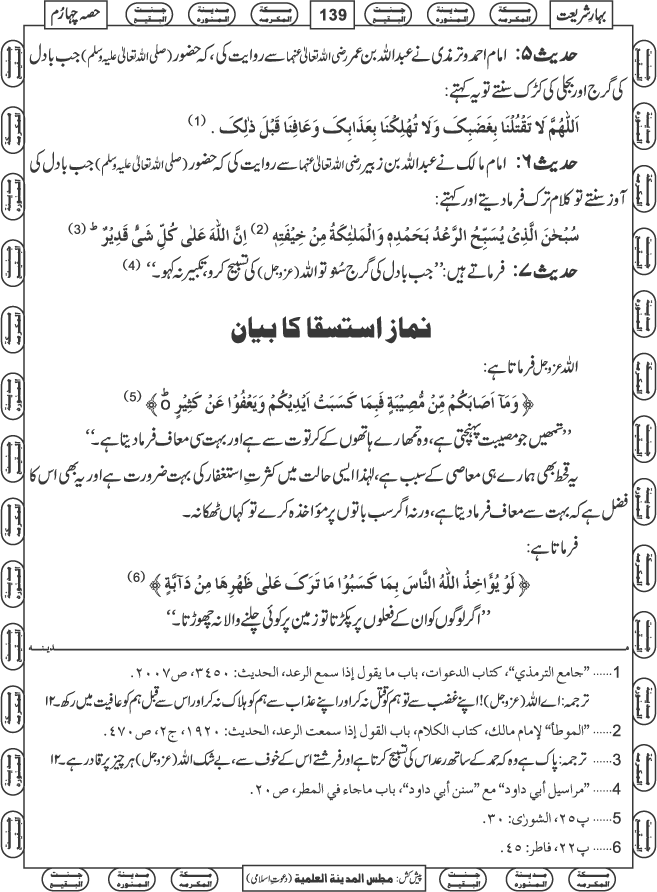 بہارِ شریعت
139
حصہ چہارم
حدیث ۵: امام احمد و ترمذی نے عبداللہ بن عمر رضی اللہ تعالیٰ عنہما سے روایت کی، کہ حضور (صلی اللہ تعالیٰ علیہ وسلم) جب بادل
کی گرج اور بجلی کی کڑک سنتے تو یہ کہتے:
اَللّٰھُمَّ لَا تَقْتُلْنَا بِغَضَبِکَ وَلَا تُھْلِکْنَا بِعَذَابِکَ وَعَافِنَا قَبْلَ ذٰلِکَ . (1)
حدیث ۶: امام مالک نے عبداللہ بن زبیر رضی اللہ تعالیٰ عنہما سے روایت کی کہ حضور (صلی اللہ تعالیٰ علیہ وسلم) جب بادل کی
آواز سنتے تو کلام ترک فرما دیتے اور کہتے:
سُبْحٰنَ الَّذِیْ یُسَبِّحُ الرَّعْدُ بِحَمْدِہٖ وَالْمَلٰئِکَۃُ مِنْ خِیْفَتِہٖ (2) اِنَّ اللّٰہَ عَلٰی کُلِّ شَیْءٍ قَدِیْرٌ ط (3)
حدیث ۷: فرماتے ہیں: ’’جب بادل کی گرج سُنو تو اللہ (عزوجل) کی تسبیح کرو، تکبیر نہ کہو۔‘‘ (4)
نماز استسقا کا بیان
اللہ عزوجل فرماتا ہے:
﴿ وَمَاۤ اَصَابَکُمْ مِّنْ مُّصِیْبَۃٍ فَبِمَا کَسَبَتْ اَیْدِیْکُمْ وَیَعْفُوْا عَنْ کَثِیْرٍ ؕ ﴾ (5)
’’تمھیں جو مصیبت پہنچتی ہے، وہ تمھارے ہاتھوں کے کرتوت سے ہے اور بہت سی معاف فرما دیتا ہے۔‘‘
یہ قحط بھی ہمارے ہی معاصی کے سبب ہے، لہٰذا ایسی حالت میں کثرتِ استغفار کی بہت ضرورت ہے اور یہ بھی اس کا
فضل ہے کہ بہت سے معاف فرما دیتا ہے، ورنہ اگر سب باتوں پر مؤاخذہ کرے تو کہاں ٹھکانہ۔
فرماتا ہے:
﴿ لَوْ یُؤَاخِذُ اللّٰہُ النَّاسَ بِمَا کَسَبُوْا مَا تَرَکَ عَلٰی ظَھْرِھَا مِنْ دَآبَّۃٍ ﴾ (6)
’’اگر لوگوں کو ان کے فعلوں پر پکڑتا تو زمین پر کوئی چلنے والا نہ چھوڑتا۔‘‘
1...... ”جامع الترمذي“، کتاب الدعوات، باب ما یقول إذا سمع الرعد، الحدیث: ۳٤۵۰، ص۲۰۰۷.
ترجمہ: اے اللہ (عزوجل)! اپنے غضب سے تو ہم کو قتل نہ کر اور اپنے عذاب سے ہم کو ہلاک نہ کر اور اس سے قبل ہم کو عافیت میں رکھ۔۱۲
2...... ”الموطأ“ لإمام مالك، کتاب الکلام، باب القول إذا سمعت الرعد، الحدیث: ۱۹۲۰، ج۲، ص٤۷۰.
3...... ترجمہ: پاک ہے وہ کہ حمد کے ساتھ رعد اس کی تسبیح کرتا ہے اور فرشتے اس کے خوف سے، بے شک اللہ (عزوجل) ہر چیز پر قادر ہے۔۱۲
4...... ”مراسیل أبي داود“ مع ”سنن أبي داود“، باب ماجاء في المطر، ص۲۰.
5...... پ۲۵، الشورٰی: ۳۰.
6...... پ۲۲، فاطر: ٤۵.
پیش کش: مجلس المدینة العلمیة (دعوتِ اسلامی)